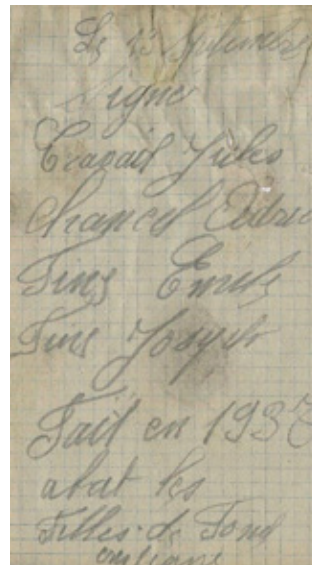 Le 13 Septembre
Signé
Travail Jules
Chancel
Fins Emile
Fins Joseph
Fait en 1937
abat les
Filles de Fond